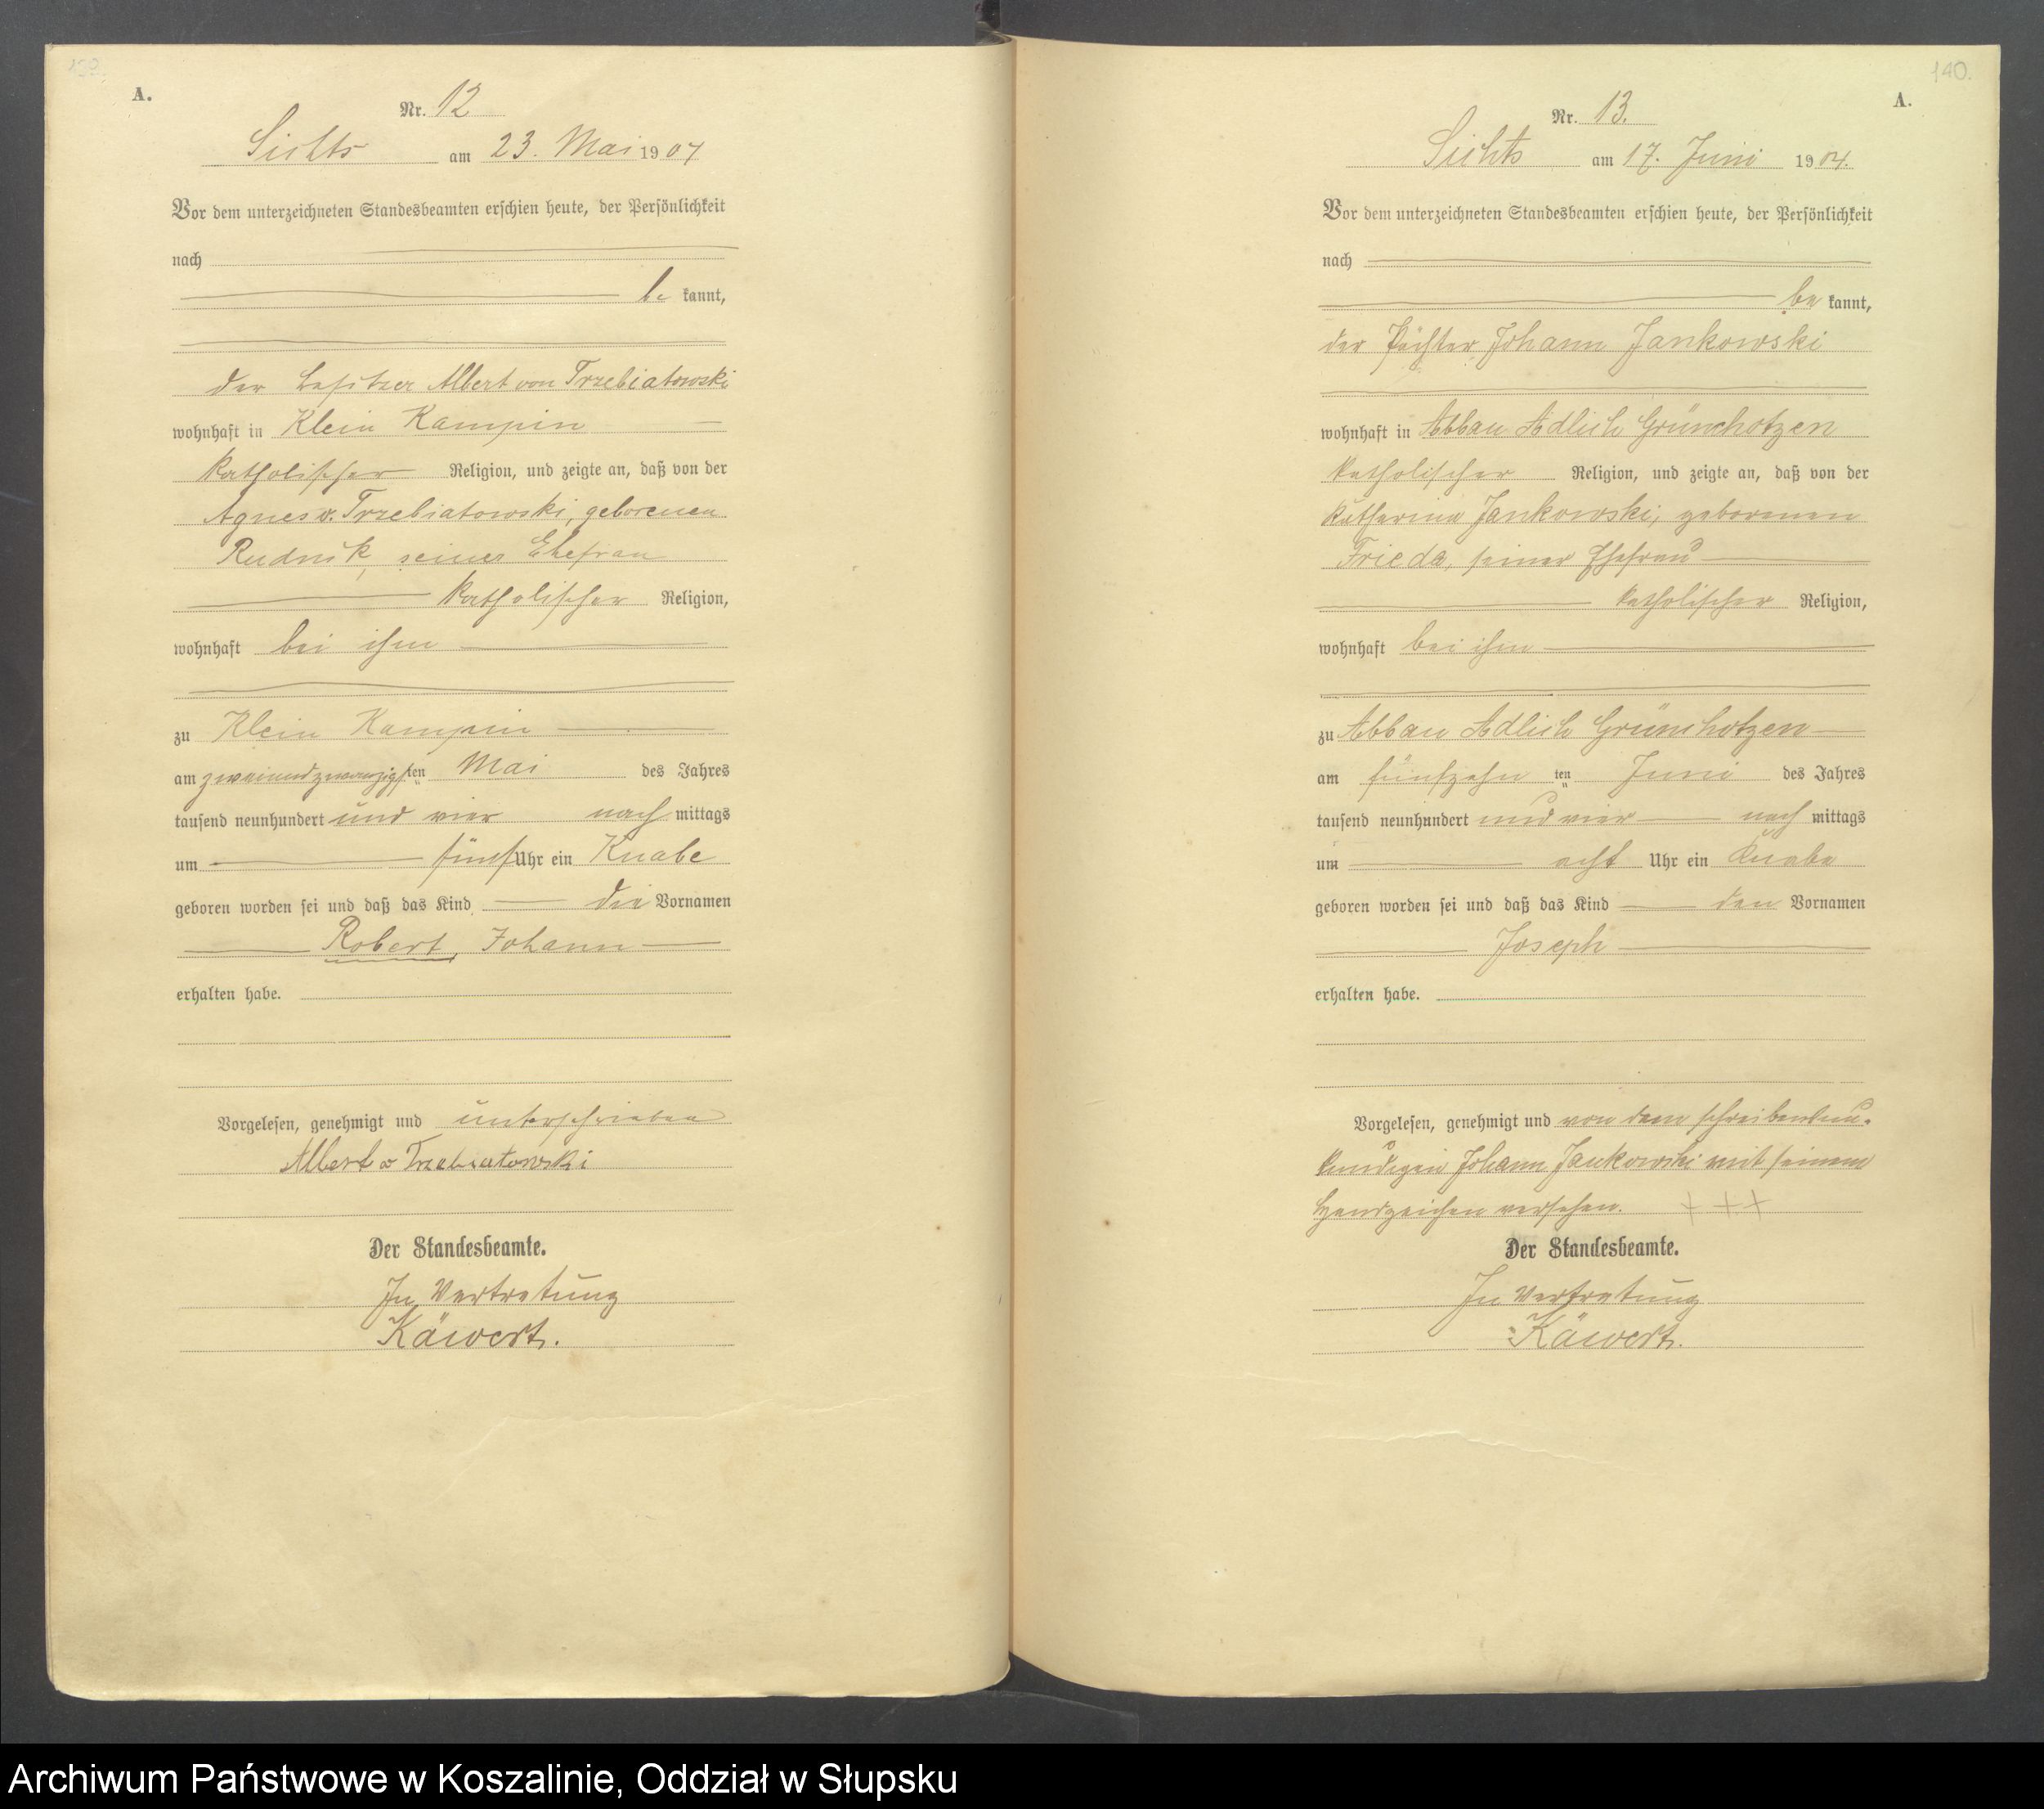 A.
Nr. 12
Sichts am 23. Mai 1904
Vor dem unterzeichneten Standesbeamten erschien heute, der Persönlichkeit
nach
be kannt,
der Besitzer Albert von Trzebiatowski
wohnhaft in Klein Kampin
katholischer Religion, und zeigte an, daß von der
Agnes v. Trzebiatowski, geborenen
Rudnik, seiner Ehefrau
katholischer Religion,
wohnhaft bei ihm
zu Klein Kampin
am zweiundzwanzigsten Mai des Jahres
tausend neunhundert und vier nach mittags
um fünf Uhr ein Knabe
geboren worden sei und daß das Kind die Vornamen
Robert, Johann
erhalten habe.
Vorgelesen, genehmigt und unterschrieben
Albert v Trzebiatowski
Der Standesbeamte.
In Vertretung
Käwert.
140.
A.
Nr. 13.
Sichts am 17. Juni 1904.
Vor dem unterzeichneten Standesbeamten erschien heute, der Persönlichkeit
nach
be kannt,
der Pächter Johann Jankowski
wohnhaft in Abbau Adlich Grünchotzen
katholischer Religion, und zeigte an, daß von der
Katharina Jankowski, geborenen
Frieda, seiner Ehefrau
katholischer Religion,
wohnhaft bei ihm
zu Abbau Adlich Grünchotzen
am fünfzehn ten Juni des Jahres
tausend neunhundert und vier nach mittags
um acht Uhr ein Knabe
geboren worden sei und daß das Kind den Vornamen
Joseph
erhalten habe.
Vorgelesen, genehmigt und von dem schreibensun-
kundigen Johann Jankowski mit seinem
Handzeichen versehen. + + +
Der Standesbeamte.
In Vertretung
Käwert.
Archiwum Państwowe w Koszalinie, Oddział w Słupsku